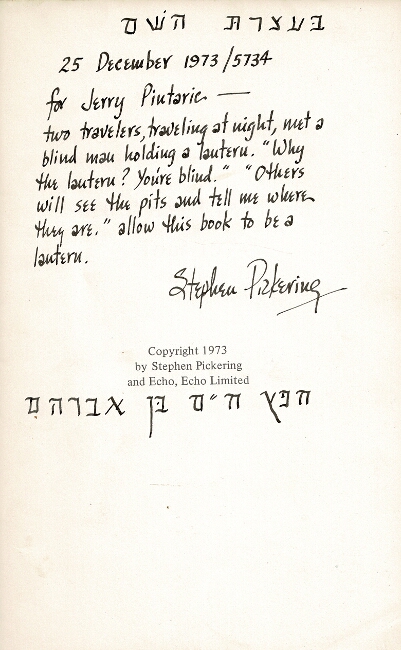 בעזרת השם
25 December 1973/5734
for Jerry Pintaric —
two travelers, traveling at night, met a
blind man holding a lantern. "Why
the lantern? You're blind." "Others
will see the pits and tell me where
they are." allow this book to be a
lantern.
Stephen Pickering
Copyright 1973
by Stephen Pickering
and Echo, Echo Limited
חפץ בן אברהם